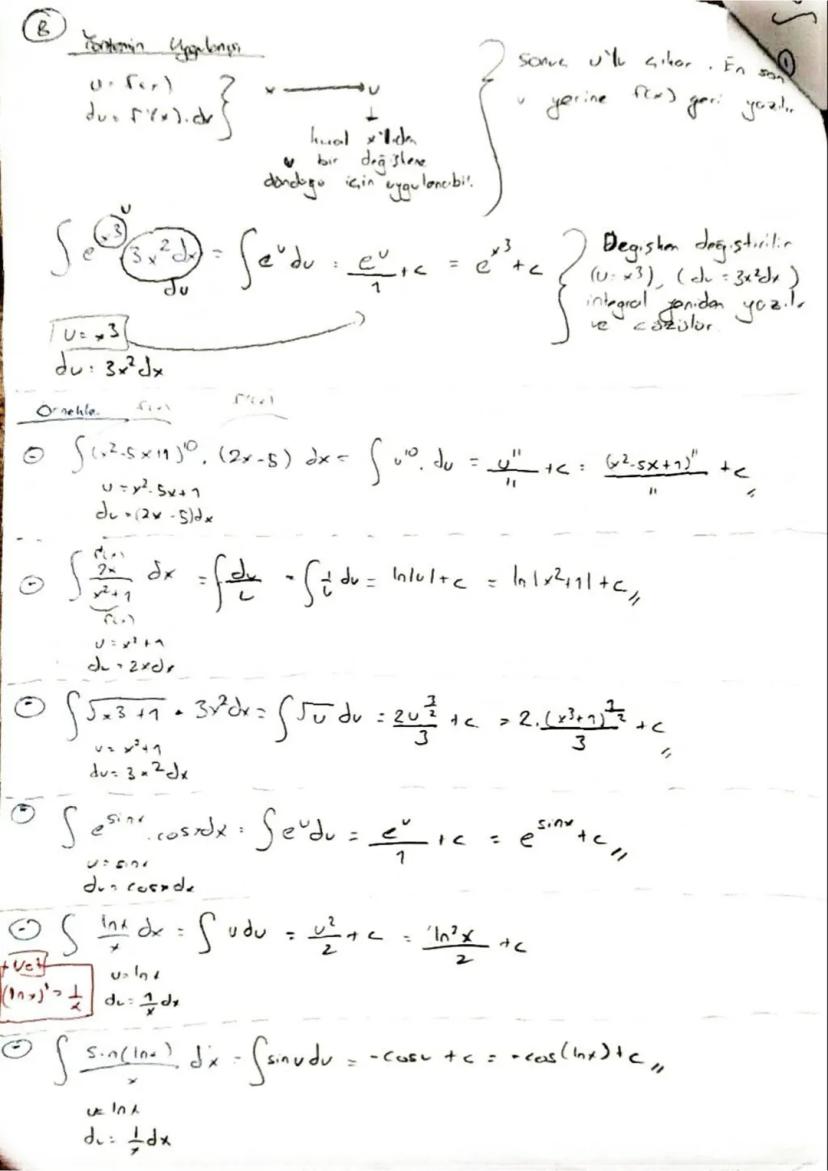 B
Yöntemin Uygulanışı
u = f(x)
du = f'(x).dx
x → u
kural x'liden
u bir değişkene
döndüğü için uygulanabil.
Sonuç u'lu çıkar. En son
u yerine f(x) geri yazılır
1
∫ e^(x^3) 3x^2 dx = ∫ e^u du = e^u/1 + c = e^(x^3) + c
u
du
u = x^3
du = 3x^2 dx
Değişken değiştirilir
(u = x^3), (du = 3x^2dx)
integral yeniden yazılır
ve çözülür
Örnekle. f(x) f'(x)
∫ (x^2-5x+1)^10 . (2x-5) dx = ∫ u^10 . du = u^11/11 + c = (x^2-5x+1)^11/11 + c
u = x^2-5x+1
du = (2x-5)dx
f'(x)
∫ 2x/(x^2+1) dx = ∫ du/u = ∫ 1/u du = ln|u| + c = ln|x^2+1| + c
f(x)
u = x^2+1
du = 2xdx
∫ √(x^3+1) . 3x^2dx = ∫ √u du = 2u^(3/2)/3 + c = 2.(x^3+1)^(3/2)/3 + c
u = x^3+1
du = 3x^2dx
∫ e^(sinx) . cosxdx = ∫ e^u du = e^u/1 + c = e^(sinx) + c
u = sinx
du = cosxdx
∫ lnx/x dx = ∫ u du = u^2/2 + c = ln^2x/2 + c
(lnx)' = 1/x
u = lnx
du = 1/x dx
∫ sin(lnx)/x dx = ∫ sinudu = -cosu + c = -cos(lnx) + c
u = lnx
du = 1/x dx